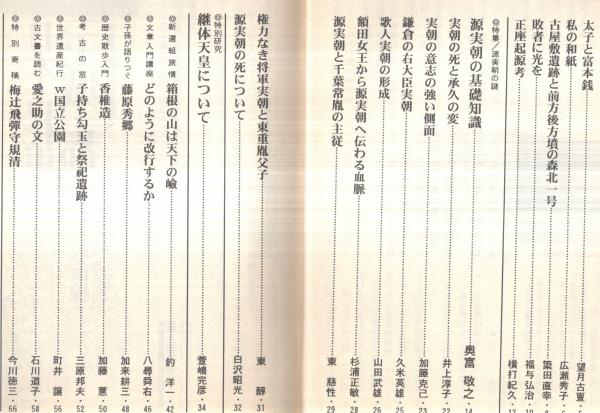 太子と富本銭 望月古亶・5
私の和紙 広瀬秀子・
古屋敷遺跡と前方後方墳の森北一号 簗田直幸・8
敗者に光を 福与弘治・10
正座起源考 横打紀久・12
◎特集/源実朝の謎
源実朝の基礎知識 奥富敬之・14
実朝の死と承久の変 井上淳子・22
実朝の意志の強い側面 加藤克己・23
鎌倉の右大臣実朝 久米英雄・25
歌人実朝の形成 山田武雄・26
額田女王から源実朝へ伝わる血脈 杉浦正敏・28
源実朝と千葉常胤の主従 東慈性・29
権力なき将軍実朝と東重胤父子 東醇・31
源実朝の死について 白沢昭光・32
◎特別研究
継体天皇について 萱嶋完彦・34
◎新選組旅情 箱根の山は天下の嶮 釣洋一・42
◎文章入門講座 どのように改行するか 八尋舜右・46
◎子孫が語りつぐ 藤原秀郷 加来耕三・48
◎歴史散歩入門 香椎造 加藤蕙・50
◎考古の窓 子持ち勾玉と祭祀遺跡 三原邦夫・52
◎世界遺産紀行 W国立公園 町井譲・56
◎古文書を読む 愛之助の文 石川道子・58
◎特別寄稿 梅辻飛騨守規清 今川徳三・66